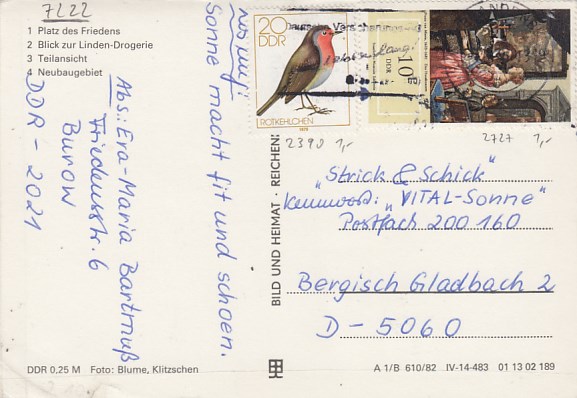 7222
1 Platz des Friedens
2 Blick zur Linden-Drogerie
3 Teilansicht
4 Neubaugebiet
Abs.: Eva-Maria Bartmuß
Friedensstr. 6
Burow
DDR - 2021
Sonne macht fit und schoen.
BILD UND HEIMAT · REICHEN
20
DDR
ROTKEHLCHEN
1979
10
DDR
2390 1,-
2727 1,-
"Strick & Schick"
Kennword: "VITAL-Sonne"
Postfach 200 160
Bergisch Gladbach 2
D - 5060
DDR 0,25 M Foto: Blume, Klitzschen
A 1/B 610/82 IV-14-483 01 13 02 189